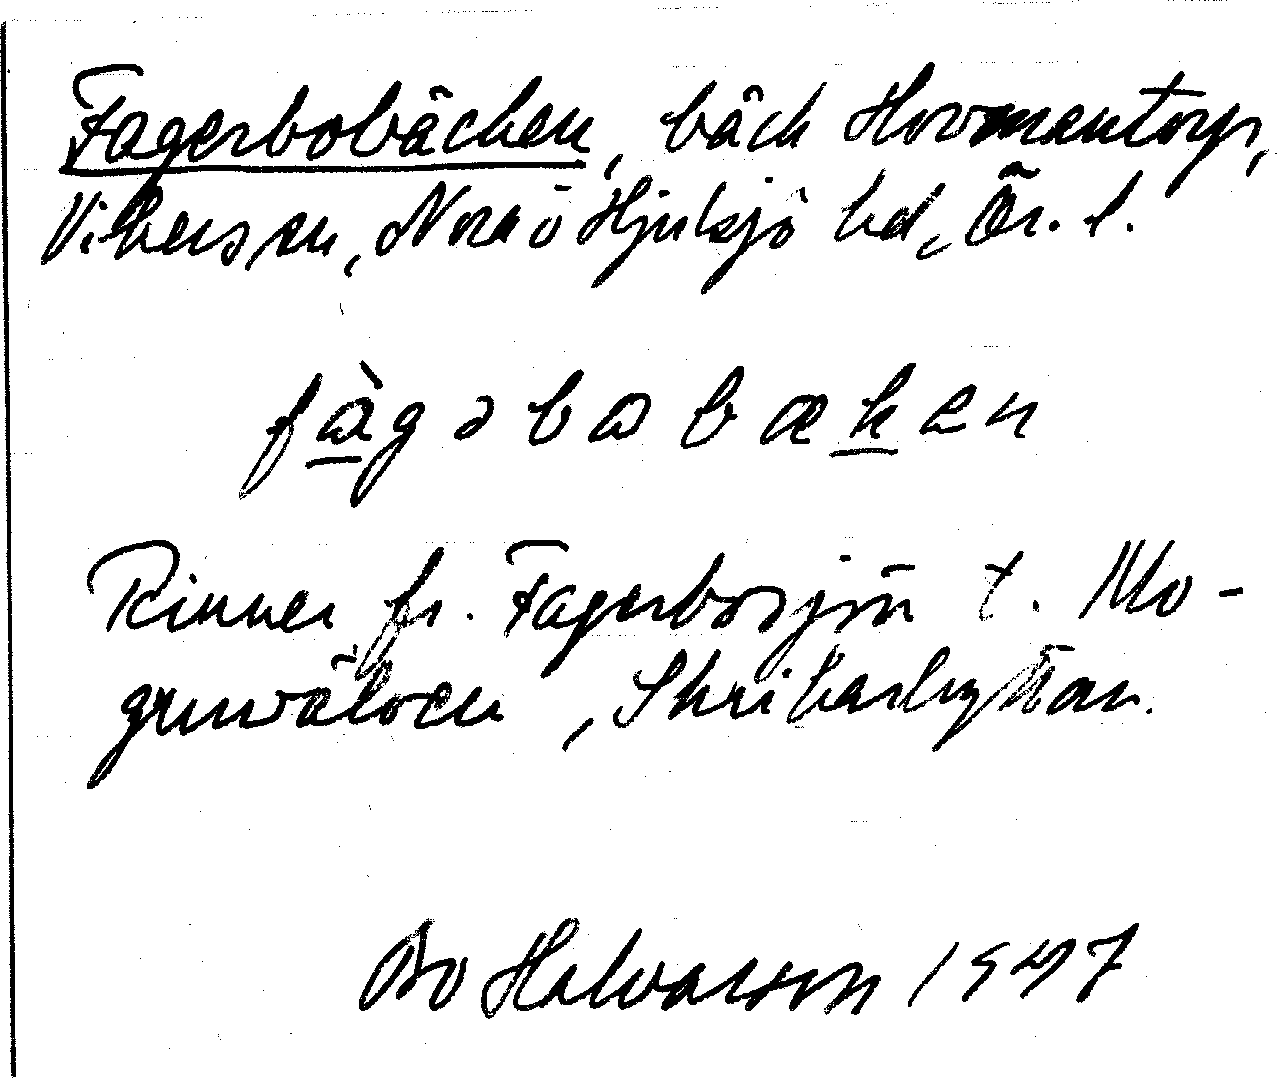 Fagerbobäcken, bäck Hovmantorp,
Vikers sn, Nora o Hjulsjö hd, Ör. l.
fàgəbobækən
Rinner fr. Fagerbosjön t. Mo-
gruvälven, Skrikarhyttan.
Bo Halvarson 1947